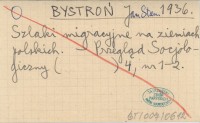 O BYSTROŃ Jan Stan. 1936.
Szlaki migracyjne na ziemiach
polskich. — Przegląd Socjolo-
giczny ( ) 4, nr 1-2.